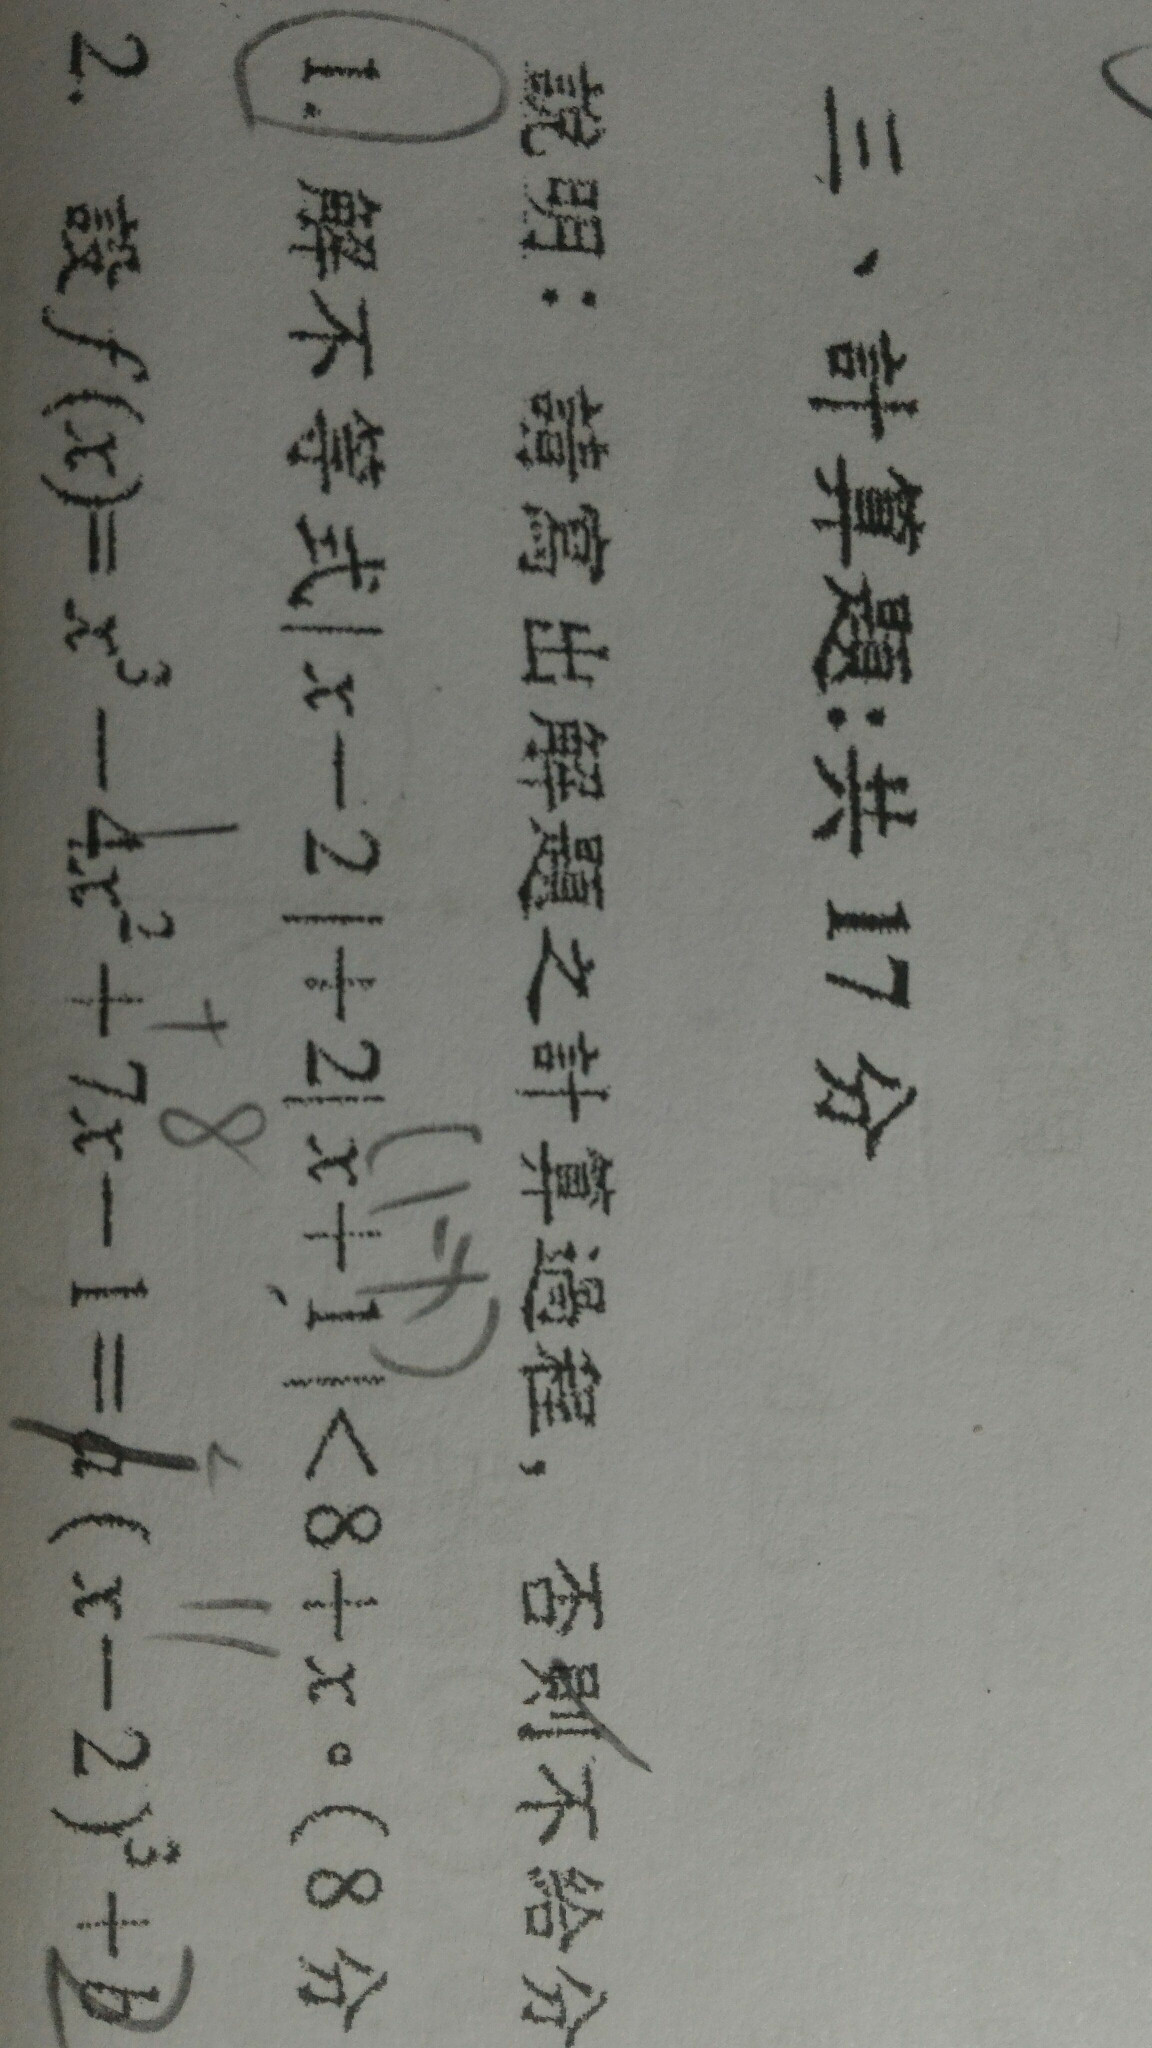 三、計算題:共17分
說明：請寫出解題之計算過程，否則不給分
1. 解不等式|x－2|＋2|x＋1|＜8＋x。(8分
(1-4)
2. 設f(x)＝x³－4x²＋7x－1＝a(x－2)³＋b